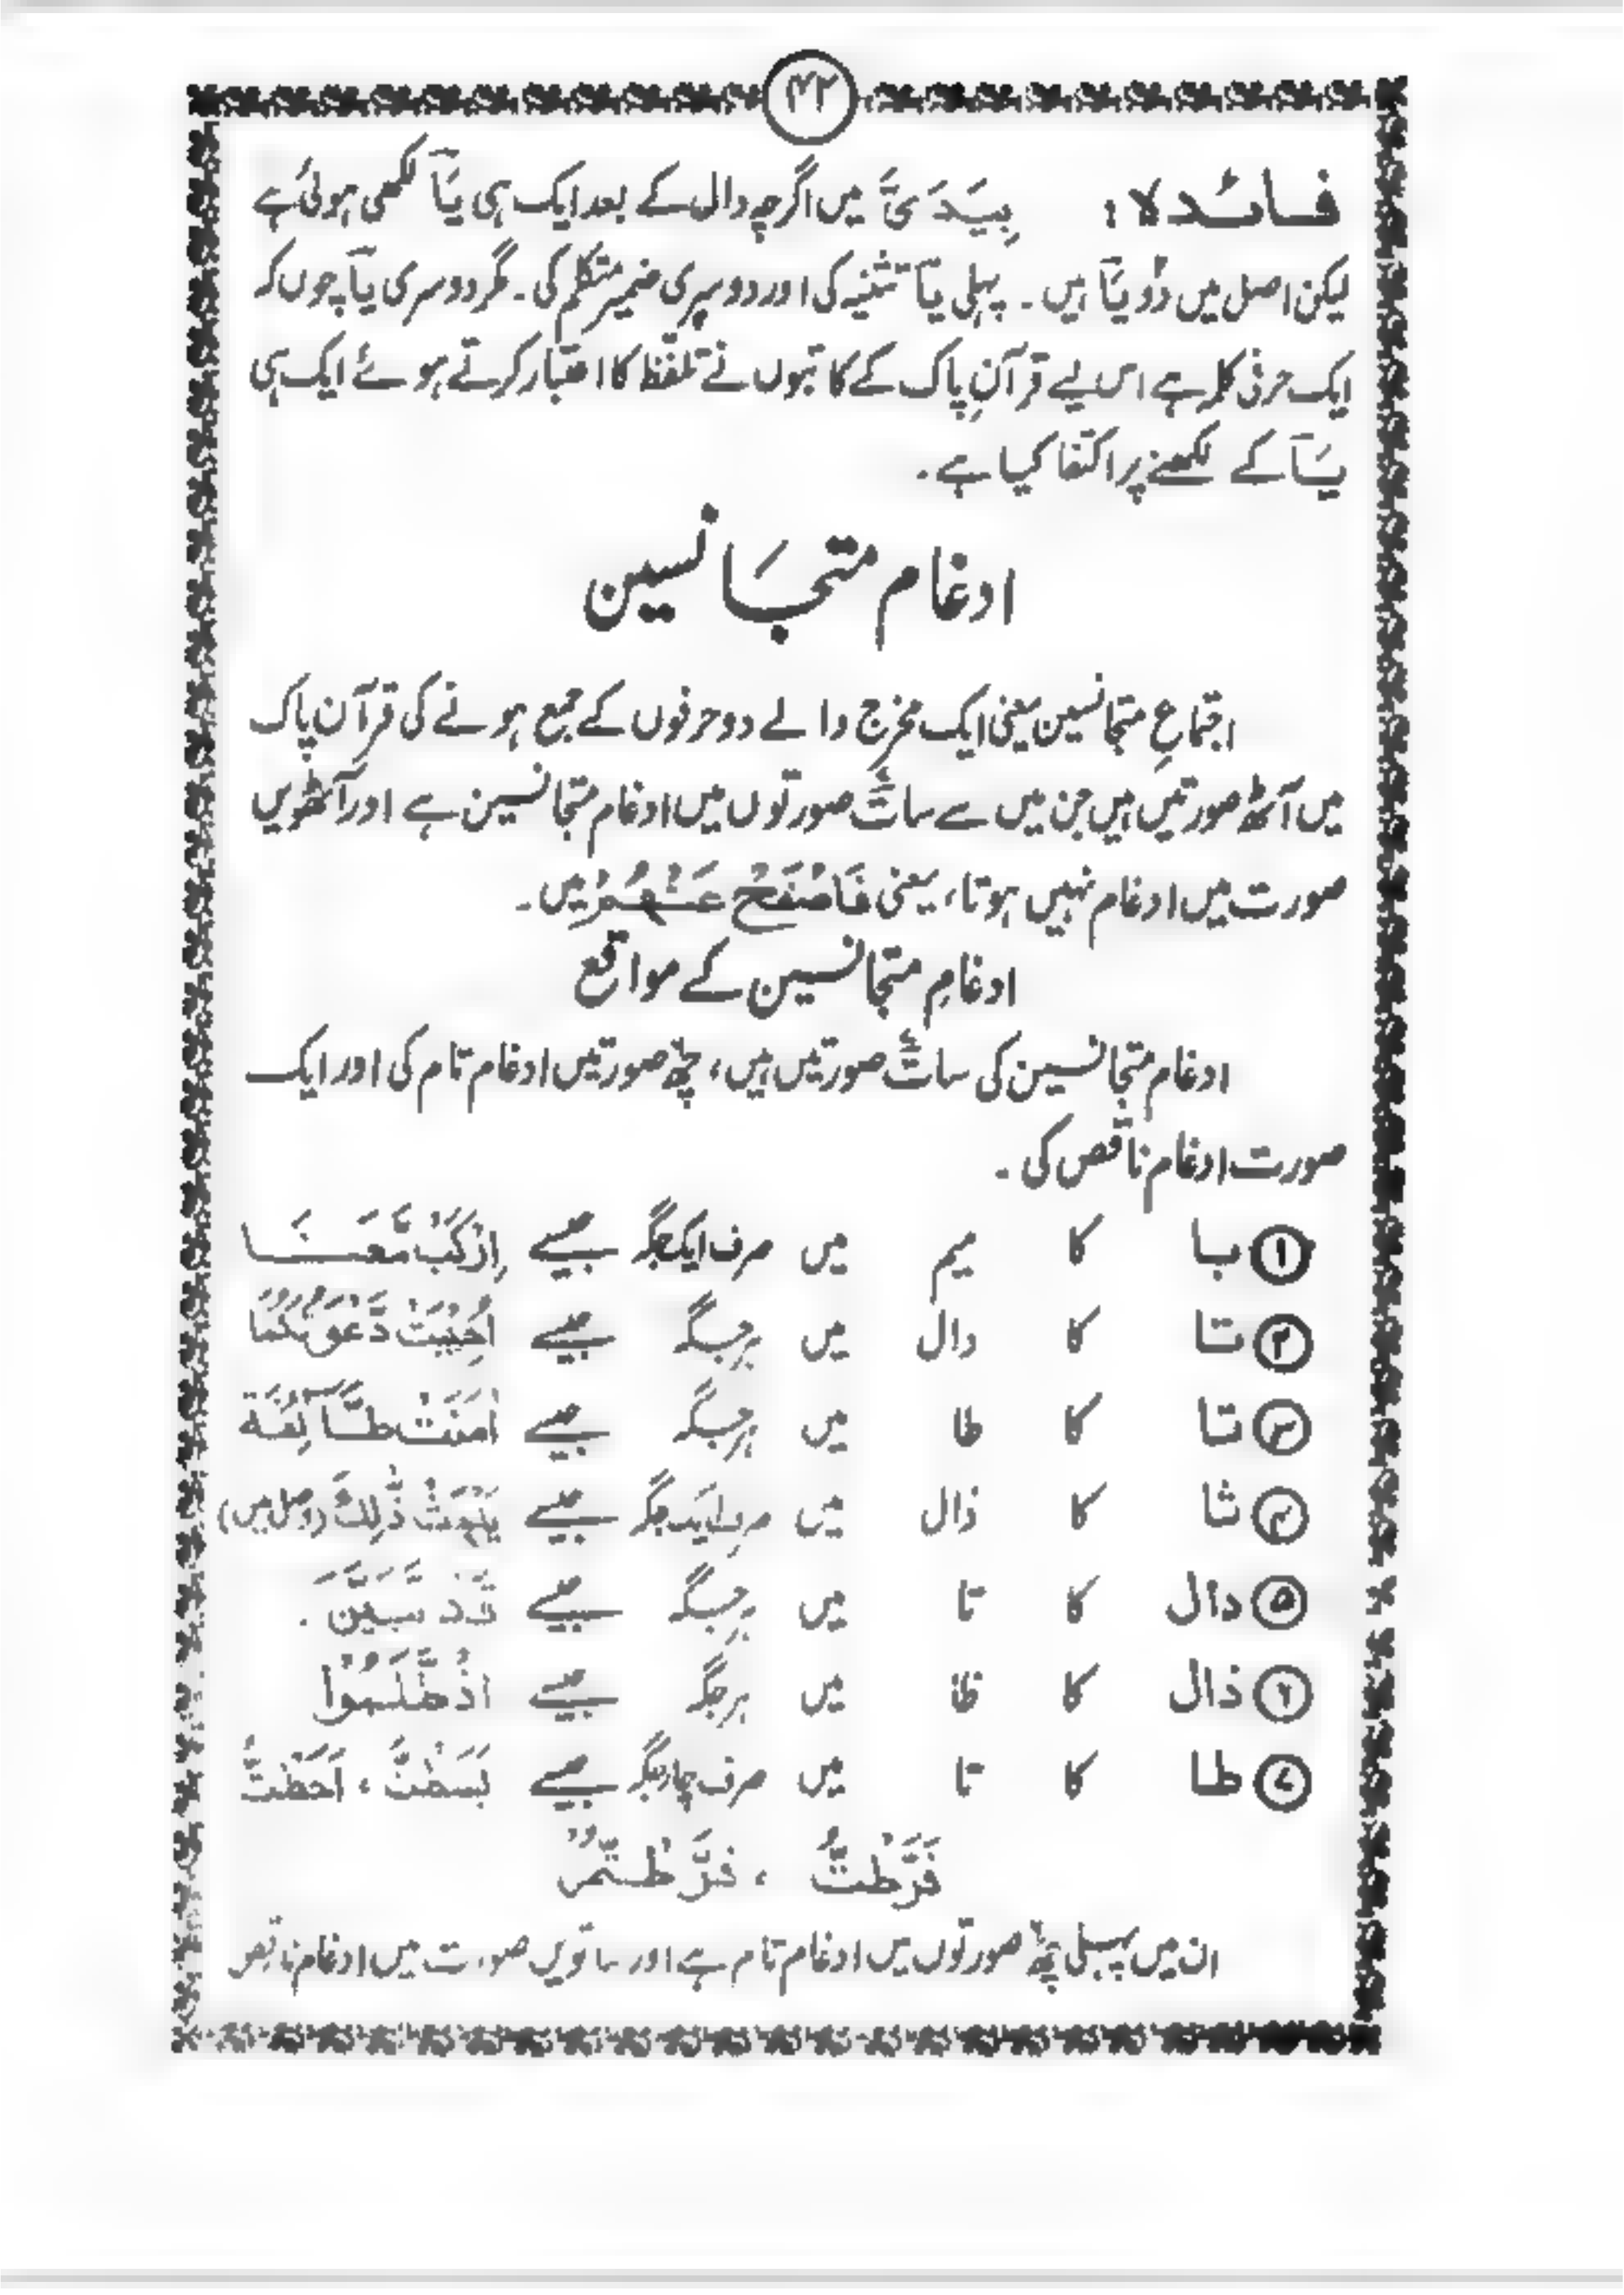 ۴۲
فائدہ: بِيَدَىَّ میں اگرچہ دال کے بعد ایک ہی یَآ لکھی ہوئی ہے
لیکن اصل میں دو یَآ ہیں ۔ پہلی یَآ تثنیہ کی اور دوسری ضمیر متکلم کی ۔ مگر دوسری یَآ چوں کہ
ایک حرفی کلمہ ہے اس لیے قرآنِ پاک کے کاتبوں نے تلفّظ کا اعتبار کرتے ہوئے ایک ہی
یَآ کے لکھنے پر اکتفا کیا ہے ۔
ادغام متجَانسین
اجتماعِ متجانسین یعنی ایک مخرج والے دو حرفوں کے جمع ہونے کی قرآن پاک
میں آٹھ صورتیں ہیں جن میں سے سات صورتوں میں ادغام متجانسین ہے اور آٹھویں
صورت میں ادغام نہیں ہوتا، یعنی فَاصْفَحْ عَنْهُمْ میں ۔
ادغامِ متجانسین کے مواقع
ادغام متجانسین کی سات صورتیں ہیں، چھ صورتیں ادغام تام کی اور ایک
صورت ادغام ناقص کی ۔
① با کا میم میں صرف ایک جگہ جیسے اِرْكَبْ مَّعَنَا
② تا کا دال میں ہر جگہ جیسے اُجِيْبَتْ دَّعْوَتُكُمَا
③ تا کا طا میں ہر جگہ جیسے اٰمَنَتْ طَّآئِفَةٌ
④ ثا کا ذال میں صرف ایک جگہ جیسے يَلْهَثْ ذّٰلِكَ (وصل میں)
⑤ دال کا تا میں ہر جگہ جیسے قَدْ تَّبَيَّنَ .
⑥ ذال کا ظا میں ہر جگہ جیسے اذْ ظَّلَمُوْا
⑦ طا کا تا میں صرف چار جگہ جیسے بَسَطْتَّ ، اَحَطْتُّ
فَرَّطْتُّ ، فَرَّطْتُّمْ
ان میں پہلی چھ صورتوں میں ادغام تام ہے اور ساتویں صورت میں ادغام ناقص